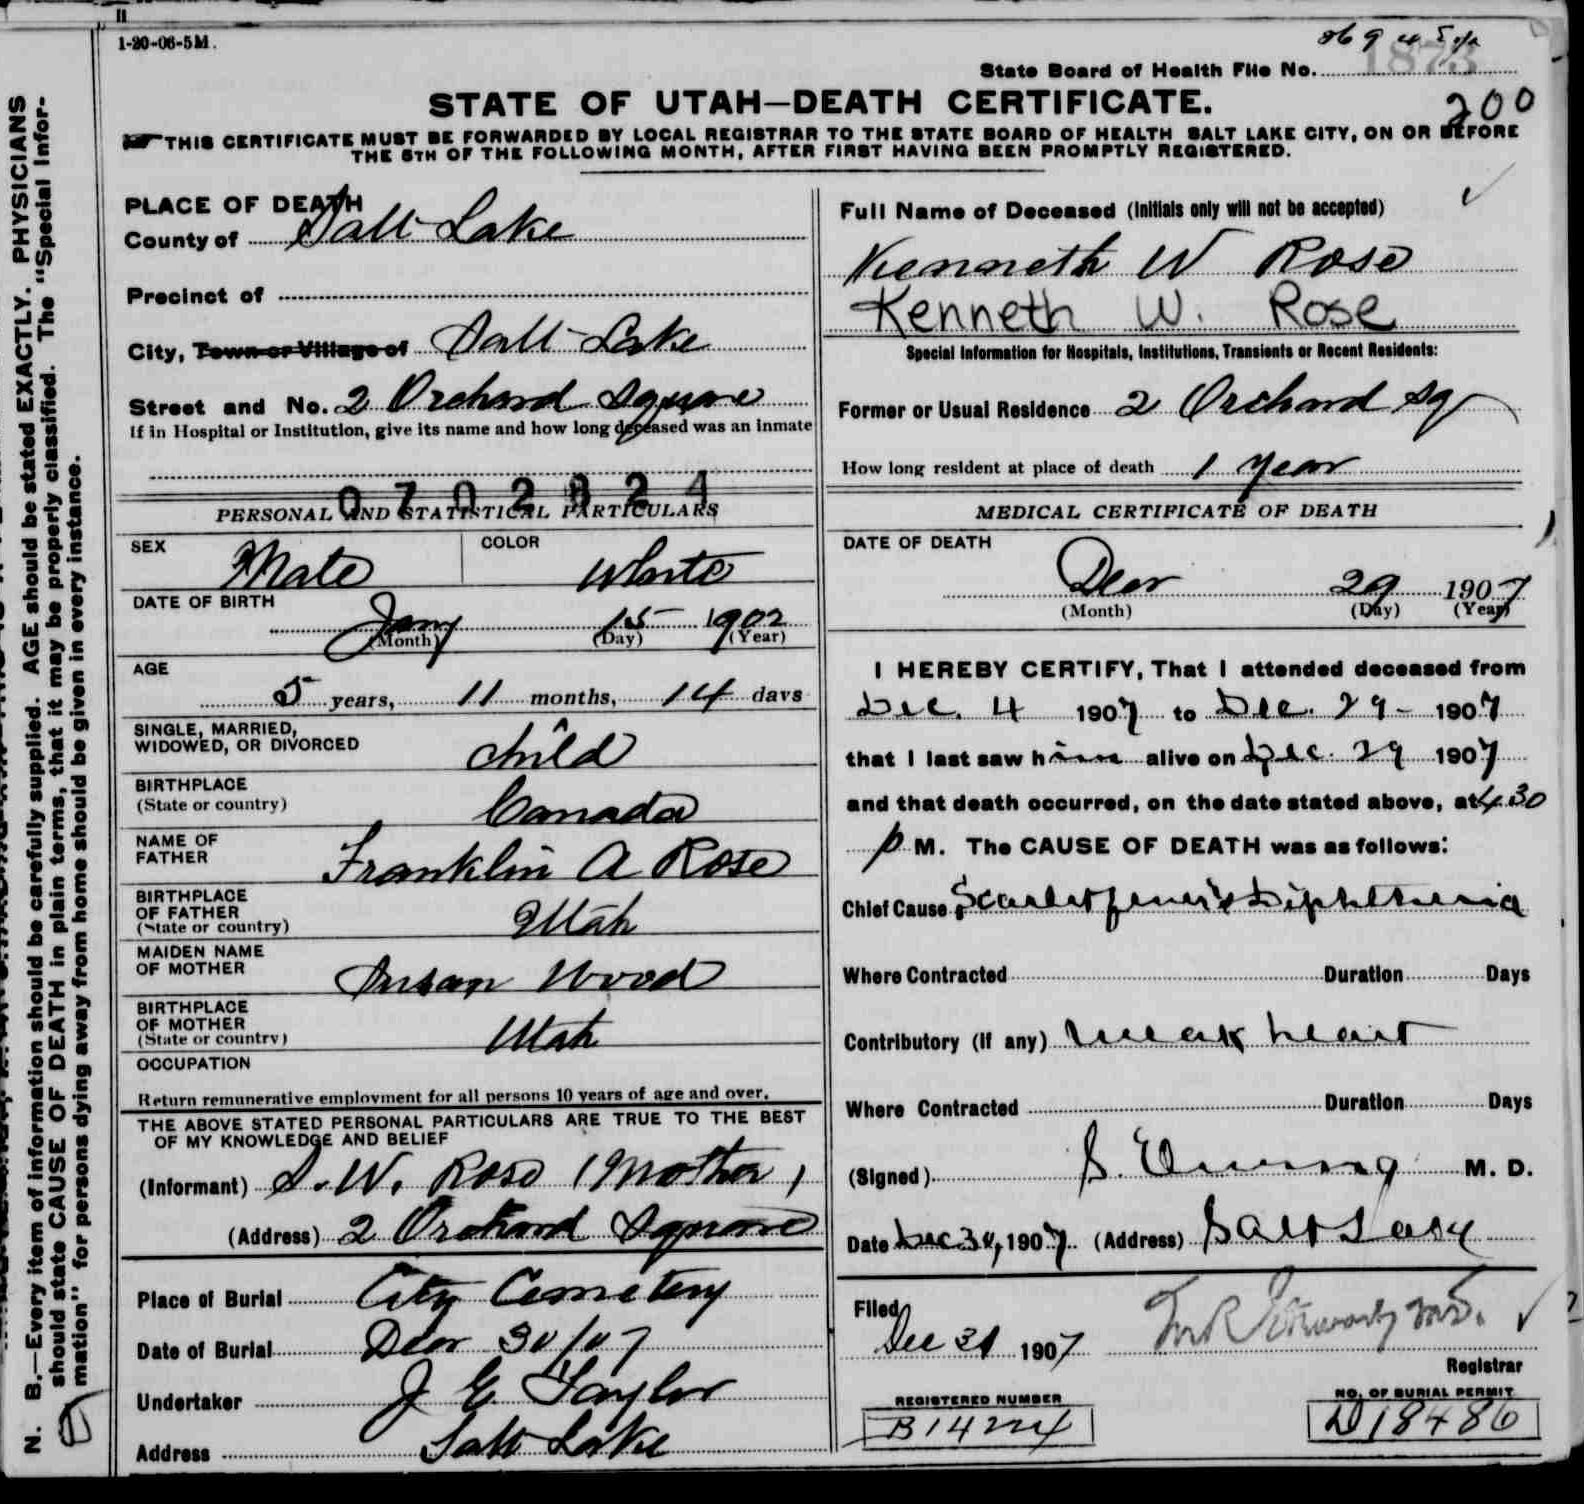 1-20-06-5M.
State Board of Health File No. 1873
200
STATE OF UTAH—DEATH CERTIFICATE.
THIS CERTIFICATE MUST BE FORWARDED BY LOCAL REGISTRAR TO THE STATE BOARD OF HEALTH SALT LAKE CITY, ON OR BEFORE
THE 5TH OF THE FOLLOWING MONTH, AFTER FIRST HAVING BEEN PROMPTLY REGISTERED.
PLACE OF DEATH
County of Salt Lake
Precinct of
City, Town or Village of Salt Lake
Street and No. 2 Orchard Square
If in Hospital or Institution, give its name and how long deceased was an inmate
PERSONAL AND STATISTICAL PARTICULARS
SEX Male COLOR White
DATE OF BIRTH
Jany 15 1902
(Month) (Day) (Year)
AGE
5 years, 11 months, 14 days
SINGLE, MARRIED,
WIDOWED, OR DIVORCED child
BIRTHPLACE
(State or country) Canada
NAME OF
FATHER Franklin A Rose
BIRTHPLACE
OF FATHER
(State or country) Utah
MAIDEN NAME
OF MOTHER Susan Wood
BIRTHPLACE
OF MOTHER
(State or country) Utah
OCCUPATION
Return remunerative employment for all persons 10 years of age and over.
THE ABOVE STATED PERSONAL PARTICULARS ARE TRUE TO THE BEST
OF MY KNOWLEDGE AND BELIEF
(Informant) S. W. Rose (Mother)
(Address) 2 Orchard Square
Place of Burial City Cemetery
Date of Burial Decr 30/07
Undertaker J E Taylor
Address Salt Lake
Full Name of Deceased (Initials only will not be accepted)
Kenneth W Rose
Kenneth W. Rose
Special Information for Hospitals, Institutions, Transients or Recent Residents:
Former or Usual Residence 2 Orchard Sq
How long resident at place of death 1 year
MEDICAL CERTIFICATE OF DEATH
DATE OF DEATH
Decr 29 1907
(Month) (Day) (Year)
I HEREBY CERTIFY, That I attended deceased from
Dec. 4 1907 to Dec. 29 - 1907
that I last saw him alive on Dec. 29 1907
and that death occurred, on the date stated above, at 4.30
p M. The CAUSE OF DEATH was as follows:
Chief Cause Scarlet fever & Diphtheria
Where Contracted Duration Days
Contributory (if any) Weak heart
Where Contracted Duration Days
(Signed) S. Ewing M. D.
Date Dec 30, 1907. (Address) Salt Lake
Filed
Dec 31 1907
Registrar
REGISTERED NUMBER
NO. OF BURIAL PERMIT
D18486
N. B.—Every item of information should be carefully supplied. AGE should be stated EXACTLY. PHYSICIANS
should state CAUSE OF DEATH in plain terms, that it may be properly classified. The "Special Infor-
mation" for persons dying away from home should be given in every instance.